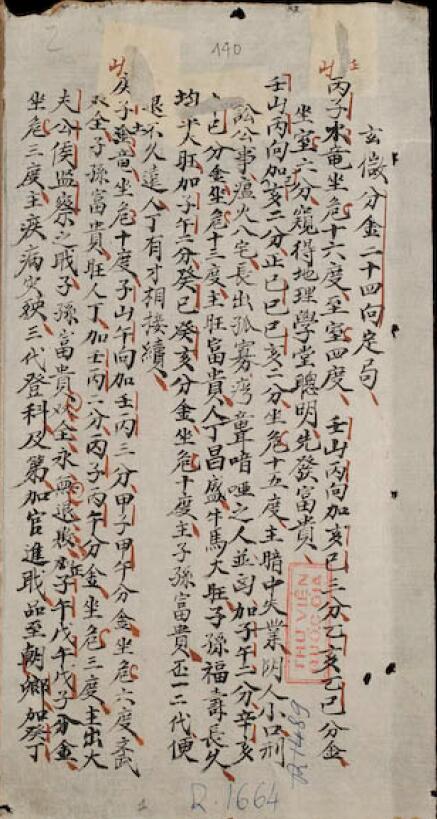 140
玄微分金二十四向定局
丙子水竜坐危十六度至室四度 壬山丙向加亥巳三分乙亥乙巳分金
坐室六分窺得地理學堂聰明先發富貴
壬山丙向加亥二分正己巳己亥二分坐危十五度主暗中失業陰人小口刑
訟公事瘟火八宅長出孤寡湾聾喑啞之人並凶加子午二分辛亥
巳分金坐危十三度主旺富貴人丁昌盛牛馬大旺子孫福壽長久
均大旺加子午二分癸巳癸亥分金坐危十度主子孫富貴一二代便
退不久遠人丁有才相接續
庚子土竜坐危十度子山午向加壬丙三分甲子甲午分金坐危六度主武
双全子孫富貴旺人丁加壬丙二分丙子丙午分金坐危三度主出大
夫公侯監察之職子孫富貴双全永無退敗加子午戊午戊子分金
坐危三度主疾病灾殃三代登科及第加官進職品至朝鄉加癸丁
THƯ VIỆN
QUỐC GIA
R.1489
R.1664